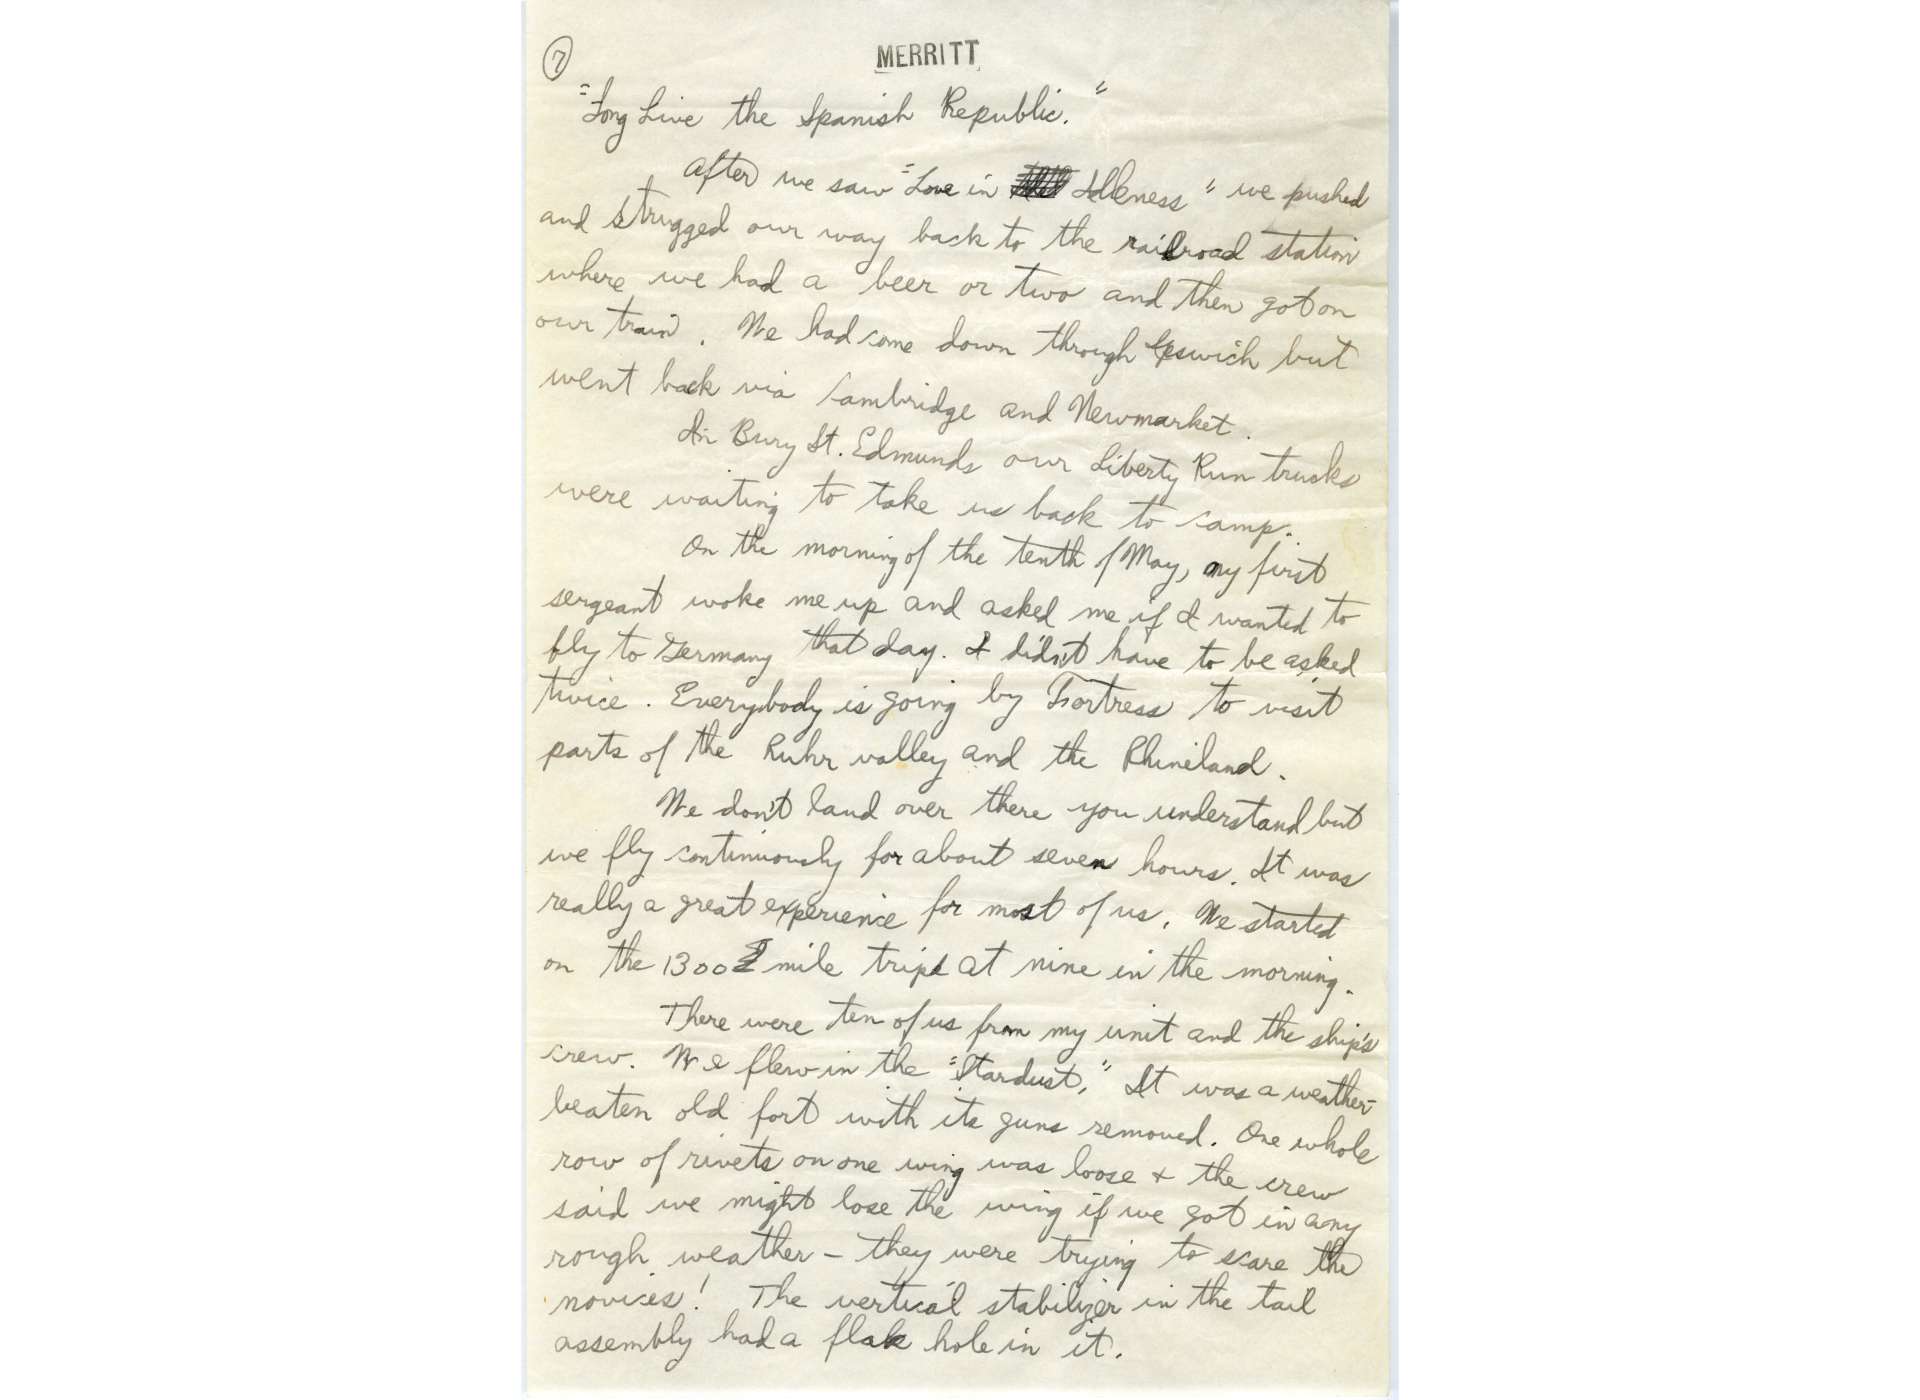 7
MERRITT
"Long Live the Spanish Republic."
After we saw "Love in Idleness" we pushed
and strugged our way back to the railroad station
where we had a beer or two and then got on
our train. We had come down through Ipswich but
went back via Cambridge and Newmarket.
In Bury St. Edmunds our Liberty Run trucks
were waiting to take us back to camp.
On the morning of the tenth of May, my first
sergeant woke me up and asked me if I wanted to
fly to Germany that day. I didn't have to be asked
twice. Everybody is going by Fortress to visit
parts of the Ruhr valley and the Rhineland.
We don't land over there you understand but
we fly continuously for about seven hours. It was
really a great experience for most of us. We started
on the 1300 mile trip at nine in the morning.
There were ten of us from my unit and the ship's
crew. We flew in the "Stardust." It was a weather-
beaten old fort with its guns removed. One whole
row of rivets on one wing was loose + the crew
said we might lose the wing if we got in any
rough weather – they were trying to scare the
novices! The vertical stabilizer in the tail
assembly had a flak hole in it.